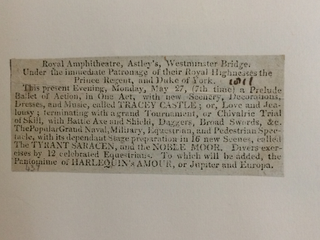 Royal Amphitheatre, Astley's, Westminster Bridge.
Under the immediate Patronage of their Royal Highnesses the
Prince Regent, and Duke of York. 1811
This present Evening, Monday, May 27, (7th time) a Prelude
Ballet of Action, in One Act, with new Scenery, Decorations,
Dresses, and Music, called TRACEY CASTLE; or, Love and Jea-
lousy; terminating with a grand Tournament, or Chivalric Trial
of Skill, with Battle Axe and Shield, Daggers, Broad Swords, &c.
The Popular Grand Naval, Military, Equestrian, and Pedestrian Spec-
tacle, with its dependant Stage preparation in 16 new Scenes, called
The TYRANT SARACEN, and the NOBLE MOOR. Divers exer-
cises by 12 celebrated Equestrians. To which will be added, the
Pantomime of HARLEQUIN'S AMOUR, or Jupiter and Europa.